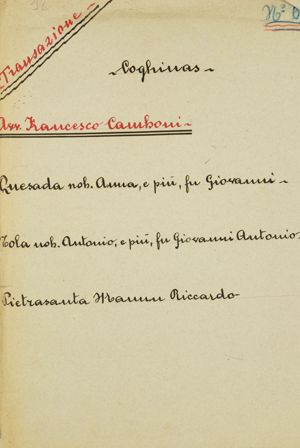 Transazione
Nº 0
~Coghinas~
Avv. Francesco Camboni-
Quesada nob. Anna, e più, fu Giovanni-
Tola nob. Antonio, e più, fu Giovanni Antonio-
Pietrasanta Mannu Riccardo-